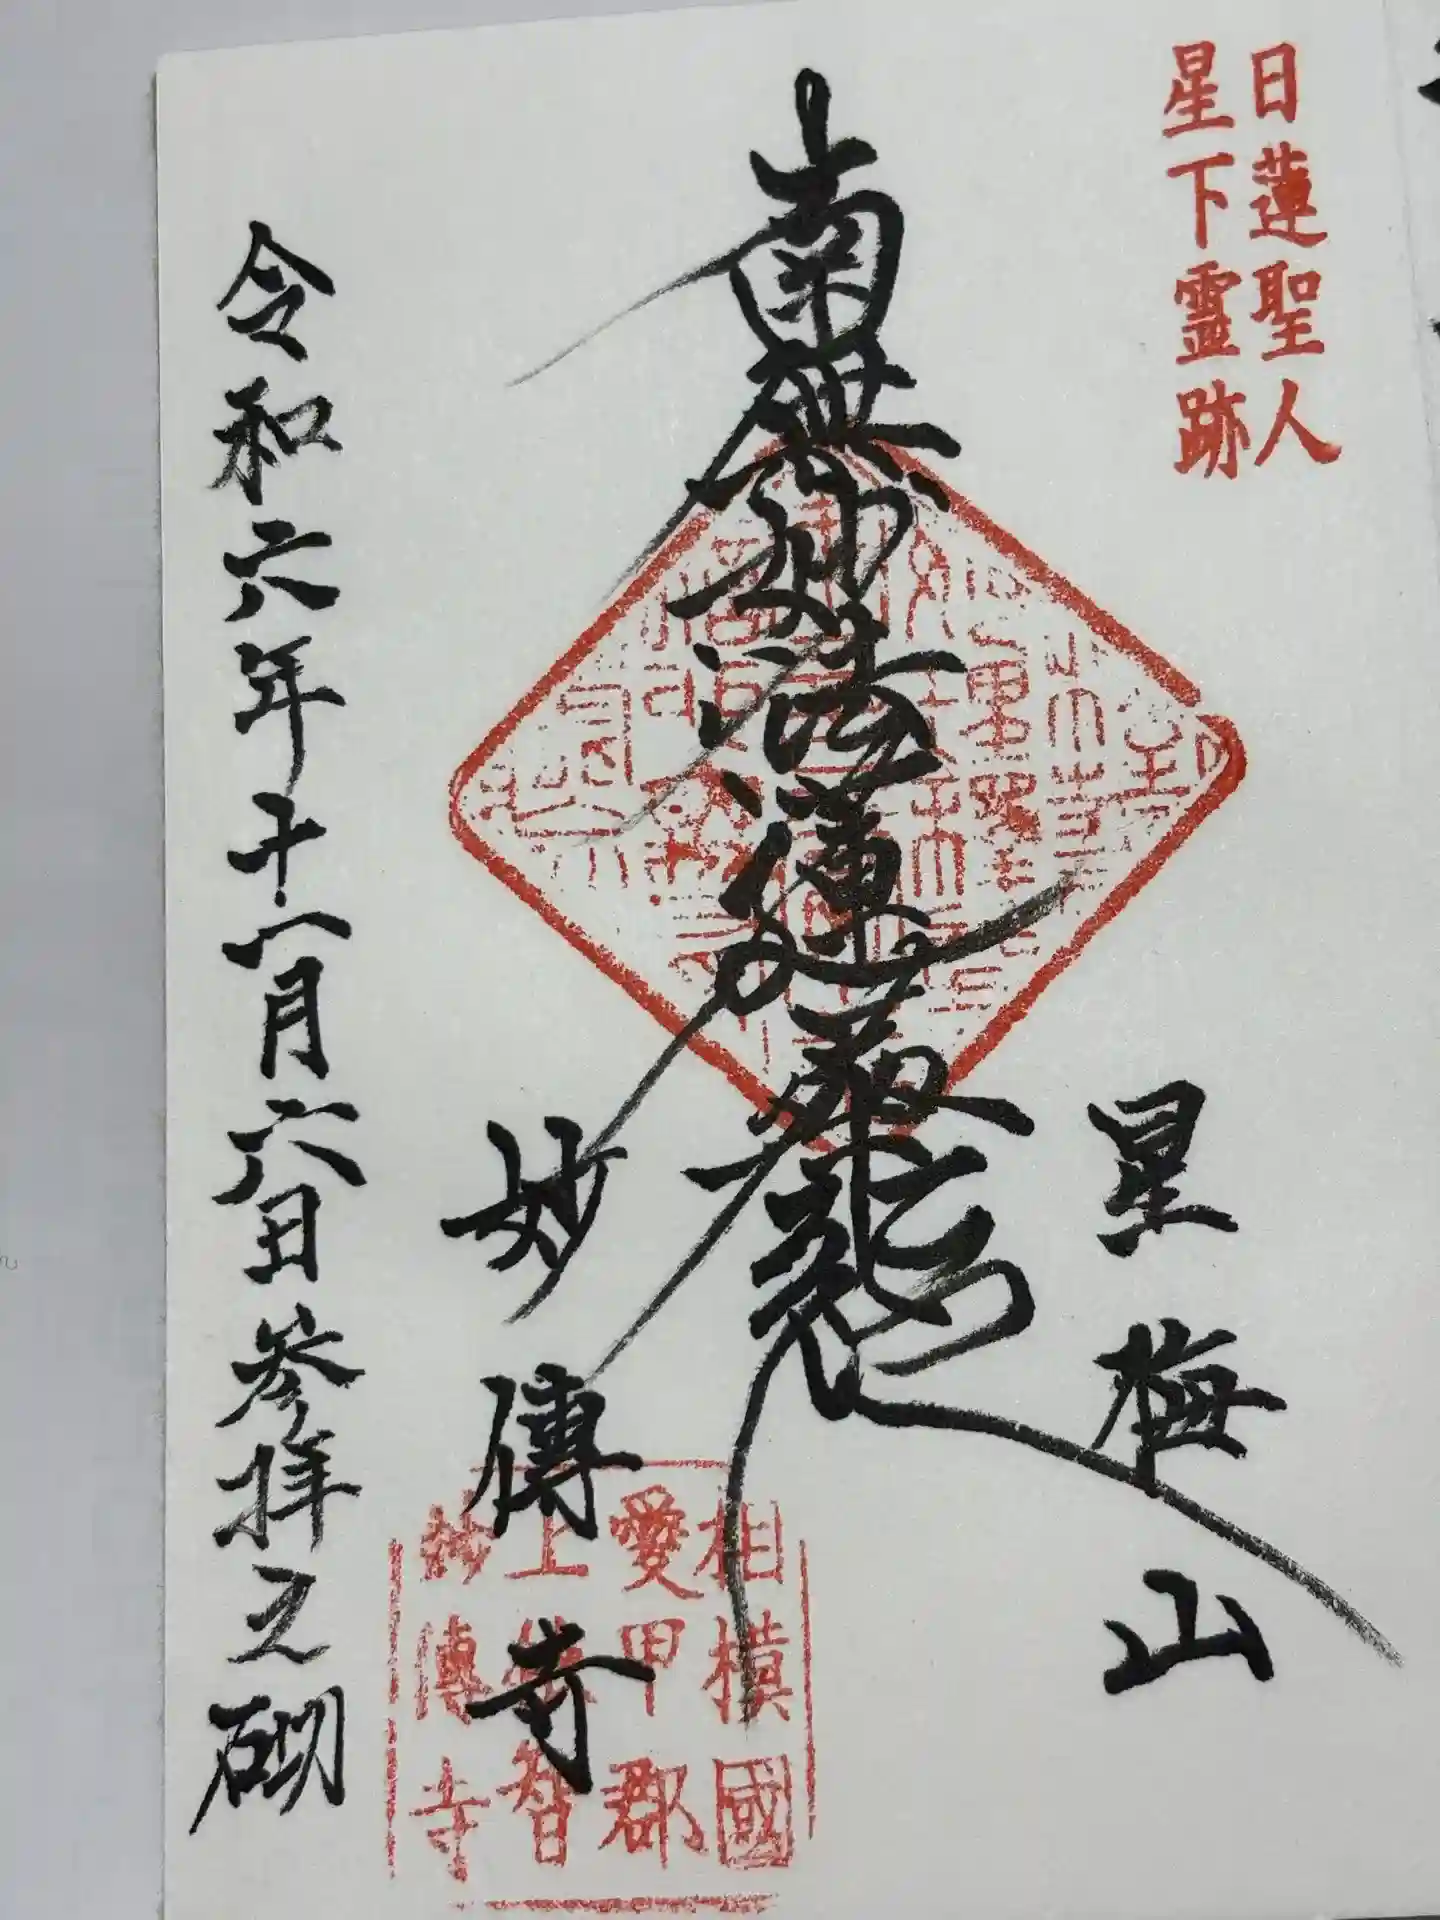 日蓮聖人
星下霊跡
星梅山
南無妙法蓮華経
妙傳寺
相模國
愛甲郡
上依智
妙傳寺
令和六年十一月六日参拝之砌